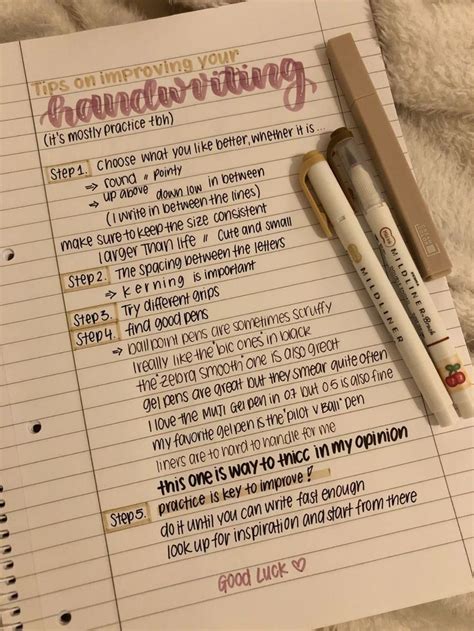 Tips on improving your
handwriting
(it's mostly practice tbh)
Step 1. Choose what you like better, whether it is...
→ round " pointy
→ up above down low in between
(I write in between the lines)
make sure to keep the size consistent
larger than life " cute and small
Step 2. The spacing between the letters
→ kerning is important
Step 3. Try different grips
Step 4. find good pens
→ ballpoint pens are sometimes scruffy
I really like the "bic" ones in black
the "zebra smooth" one is also great
gel pens are great but they smear quite often
I love the MUJI Gel pen in 07 but 05 is also fine
my favorite gel pen is the "pilot v Ball" pen
liners are to hard to handle for me
this one is way to thicc in my opinion
Step 5. practice is key to improve!
do it until you can write fast enough
look up for inspiration and start from there
Good Luck ♡
MILDLINER
MILDLINER